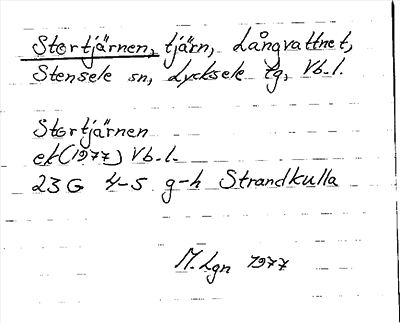 Stortjärnen, tjärn, Långvattnet,
Stensele sn, Lycksele tg, Vb.l.
Stortjärnen
ek (1977) Vb.l.
23 G 4-5 g-h Strandkulla
M. Lgn 1977